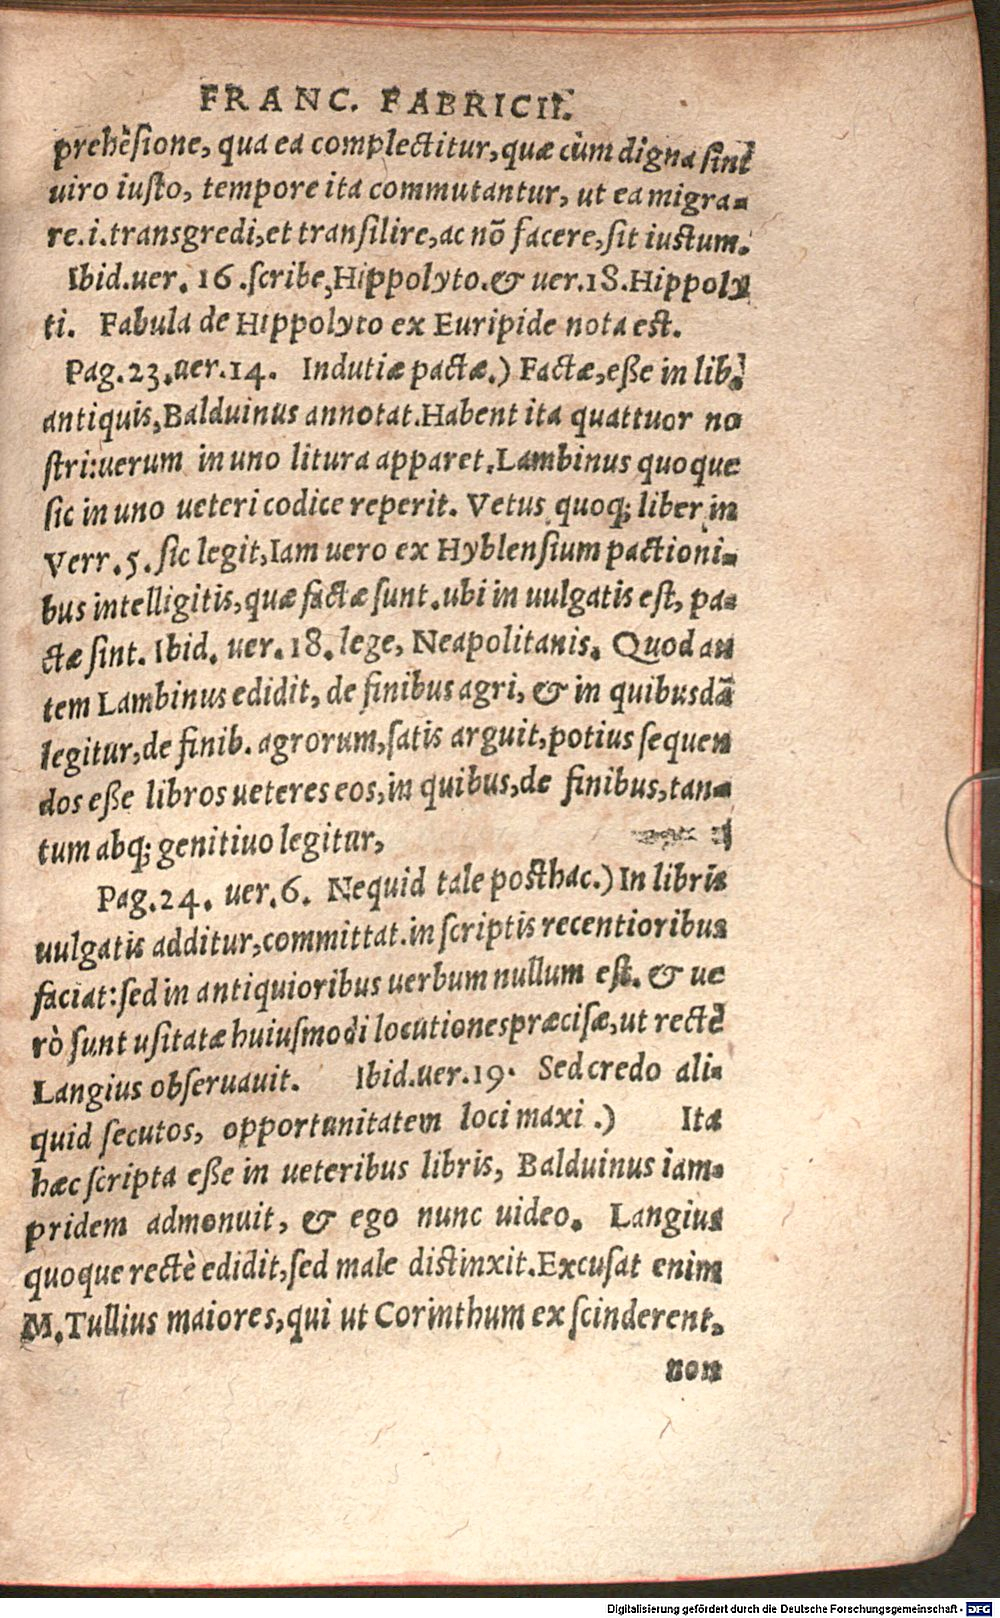 FRANC. FABRICII.
prehēsione, qua ea complectitur, quæ cùm digna sint
uiro iusto, tempore ita commutantur, ut ea migra-
re.i.transgredi, et transilire, ac nõ facere, sit iustum.
Ibid.uer. 16.scribe, Hippolyto. & uer.18. Hippoly
ti. Fabula de Hippolyto ex Euripide nota est.
Pag.23.uer.14. Indutiæ pactæ.) Factæ, eße in lib.
antiquis, Balduinus annotat. Habent ita quattuor no
stri: uerum in uno litura apparet. Lambinus quoque
sic in uno ueteri codice reperit. Vetus quoq; liber in
Verr.5. sic legit, Iam uero ex Hyblensium pactioni-
bus intelligitis, quæ factæ sunt. ubi in uulgatis est, pa-
ctæ sint. Ibid. uer. 18. lege, Neapolitanis. Quod au
tem Lambinus edidit, de finibus agri, & in quibusdã
legitur, de finib. agrorum, satis arguit, potius sequen
dos eße libros ueteres eos, in quibus, de finibus, tan-
tum abq; genitiuo legitur,
Pag.24. uer.6. Nequid tale posthac.) In libris
uulgatis additur, committat. in scriptis recentioribus
faciat: sed in antiquioribus uerbum nullum est. & ue
rò sunt usitatæ huiusmodi locutiones præcisæ, ut rectè
Langius obseruauit. Ibid.uer.19. Sed credo ali-
quid secutos, opportunitatem loci maxi.) Ita
hæc scripta eße in ueteribus libris, Balduinus iam-
pridem admonuit, & ego nunc uideo. Langius
quoque rectè edidit, sed male distinxit. Excusat enim
M. Tullius maiores, qui ut Corinthum exscinderent,
non
Digitalisierung gefördert durch die Deutsche Forschungsgemeinschaft - DFG